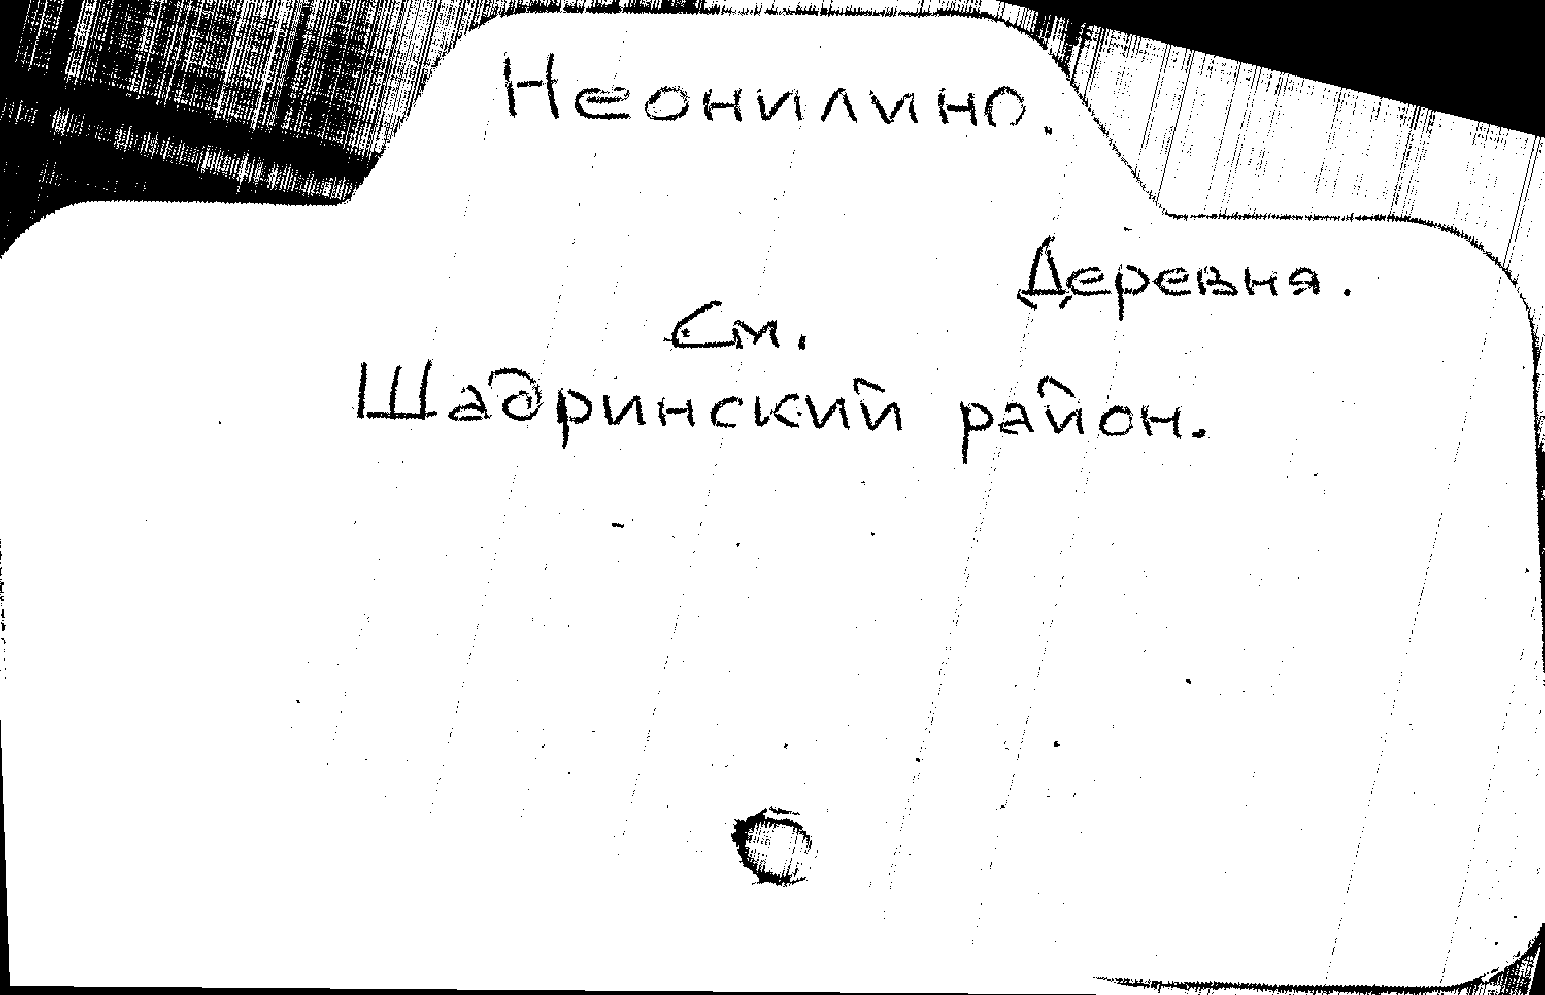 Неонилино.
Деревня.
См.
Шадринский район.